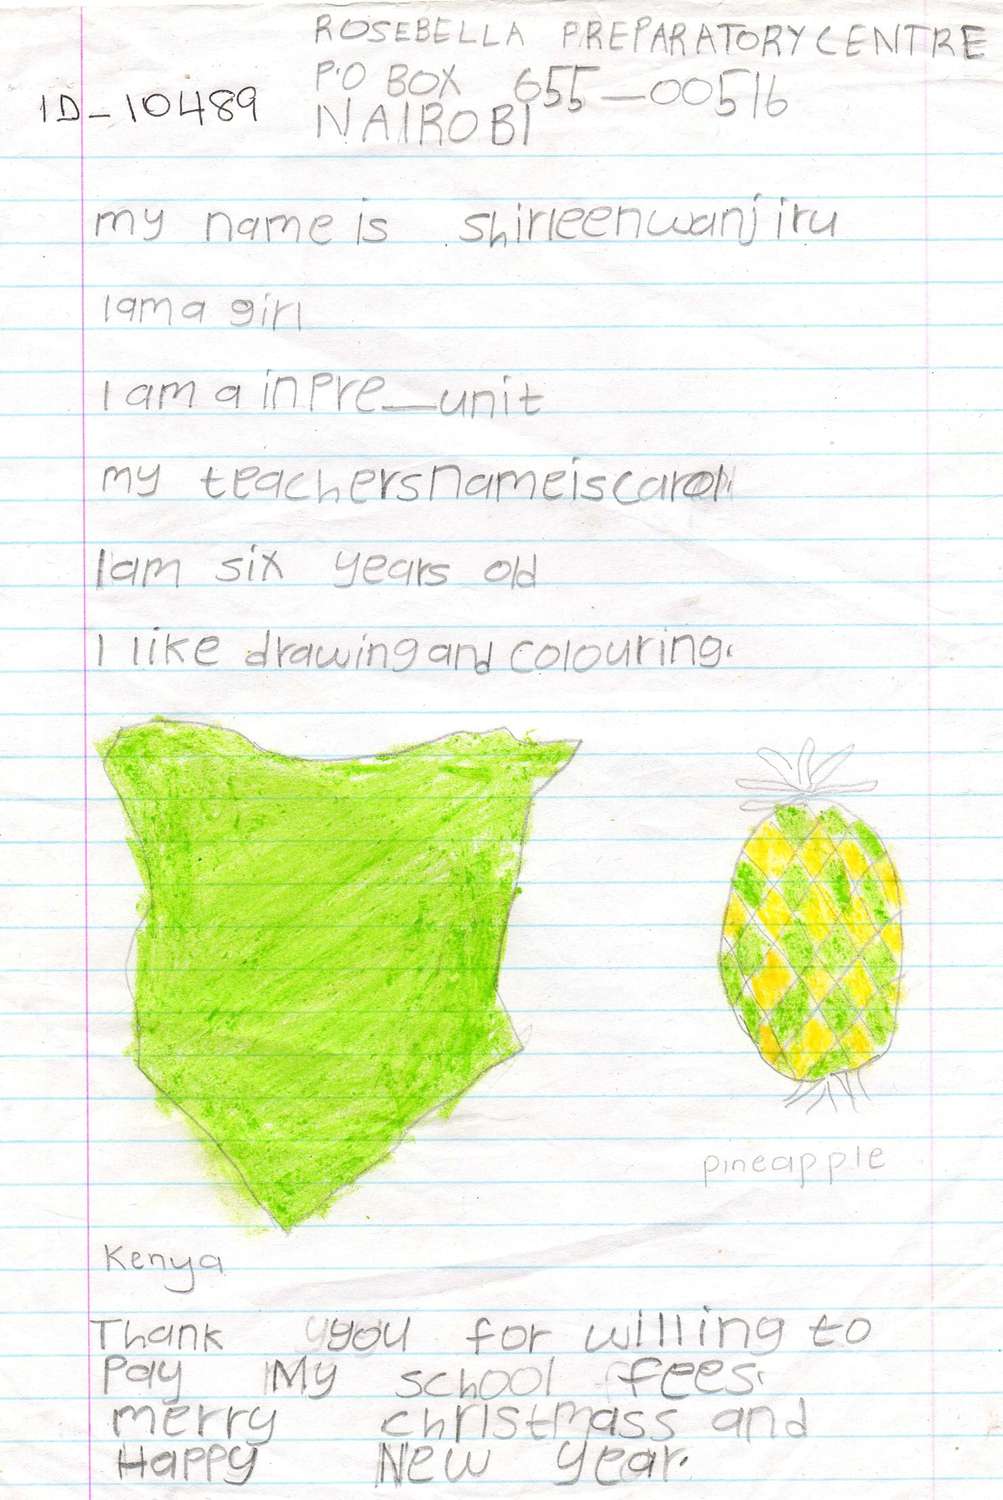 ROSEBELLA PREPARATORY CENTRE
P.O BOX 655-00516
ID-10489
NAIROBI
my name is shirleen wanjiru
I am a girl
I am a in pre-unit
my teachers name is carol
I am six years old
I like drawing and colouring.
pineapple
Kenya
Thank you for willing to
Pay My school fees.
merry christmass and
Happy New year.